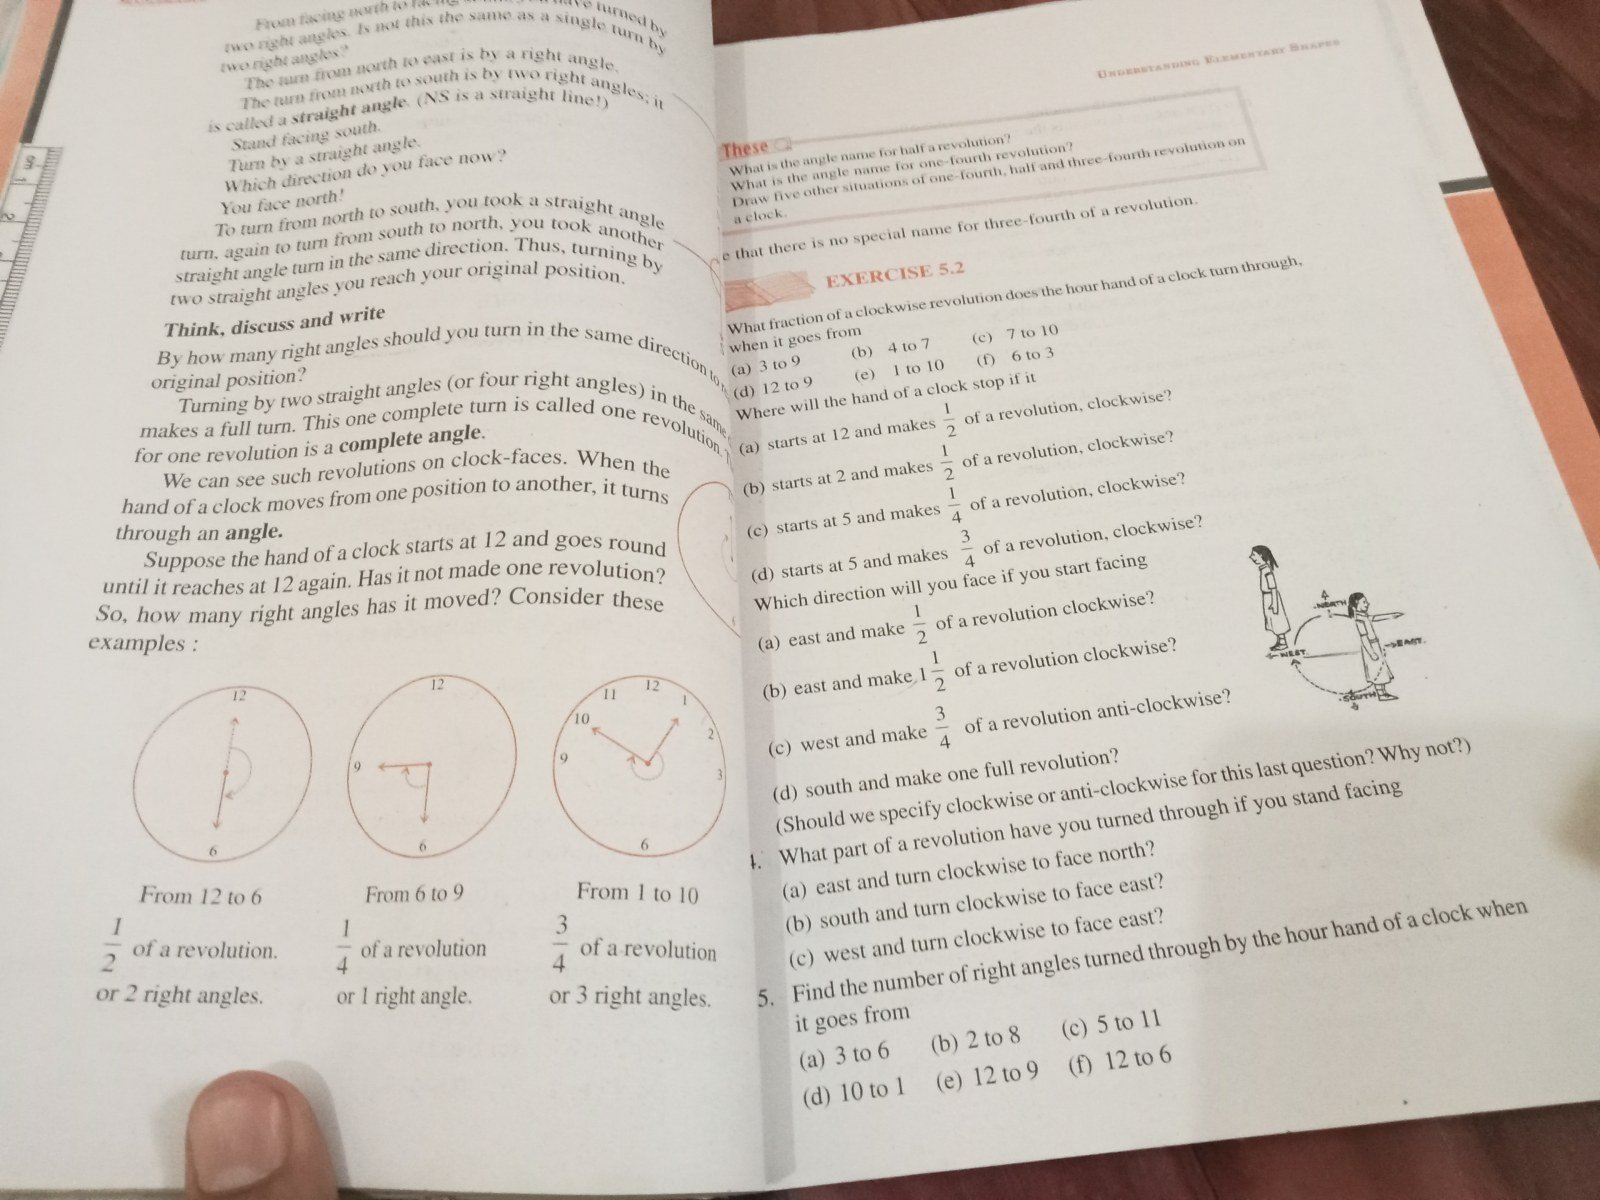 From facing north to facing you have turned by
two right angles. Is not this the same as a single turn by
two right angles?
The turn from north to east is by a right angle.
The turn from north to south is by two right angles; it
is called a straight angle. (NS is a straight line!)
Stand facing south.
Turn by a straight angle.
Which direction do you face now?
You face north!
To turn from north to south, you took a straight angle
turn, again to turn from south to north, you took another
straight angle turn in the same direction. Thus, turning by
two straight angles you reach your original position.
Think, discuss and write
By how many right angles should you turn in the same direction to
original position?
Turning by two straight angles (or four right angles) in the same
makes a full turn. This one complete turn is called one revolution.
for one revolution is a complete angle.
We can see such revolutions on clock-faces. When the
hand of a clock moves from one position to another, it turns
through an angle.
Suppose the hand of a clock starts at 12 and goes round
until it reaches at 12 again. Has it not made one revolution?
So, how many right angles has it moved? Consider these
examples :
12
6
12
9
6
12
11
1
10
2
9
3
6
From 12 to 6
1/2 of a revolution.
or 2 right angles.
From 6 to 9
1/4 of a revolution
or 1 right angle.
From 1 to 10
3/4 of a revolution
or 3 right angles.
UNDERSTANDING ELEMENTARY SHAPES
These
What is the angle name for half a revolution?
What is the angle name for one-fourth revolution?
Draw five other situations of one-fourth, half and three-fourth revolution on
a clock.
e that there is no special name for three-fourth of a revolution.
EXERCISE 5.2
What fraction of a clockwise revolution does the hour hand of a clock turn through,
when it goes from
(a) 3 to 9 (b) 4 to 7 (c) 7 to 10
(d) 12 to 9 (e) 1 to 10 (f) 6 to 3
Where will the hand of a clock stop if it
(a) starts at 12 and makes 1/2 of a revolution, clockwise?
(b) starts at 2 and makes 1/2 of a revolution, clockwise?
(c) starts at 5 and makes 1/4 of a revolution, clockwise?
(d) starts at 5 and makes 3/4 of a revolution, clockwise?
Which direction will you face if you start facing
(a) east and make 1/2 of a revolution clockwise?
(b) east and make 1 1/2 of a revolution clockwise?
(c) west and make 3/4 of a revolution anti-clockwise?
(d) south and make one full revolution?
(Should we specify clockwise or anti-clockwise for this last question? Why not?)
NORTH
EAST
WEST
SOUTH
4. What part of a revolution have you turned through if you stand facing
(a) east and turn clockwise to face north?
(b) south and turn clockwise to face east?
(c) west and turn clockwise to face east?
5. Find the number of right angles turned through by the hour hand of a clock when
it goes from
(a) 3 to 6 (b) 2 to 8 (c) 5 to 11
(d) 10 to 1 (e) 12 to 9 (f) 12 to 6